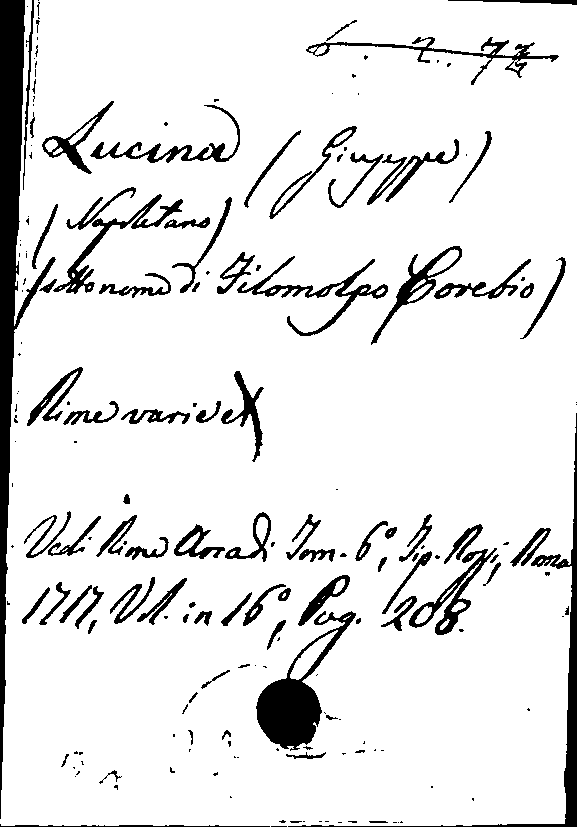 6. 2. 73
Lucina (Giuseppe)
(Napoletano)
(sotto nome di Filomolpo Corebio)
Rime varie
Vedi Rime Arcadi Tom. 6º, Tip. Rossi, Roma
1717, Vol. in 16º, Pag. 208.